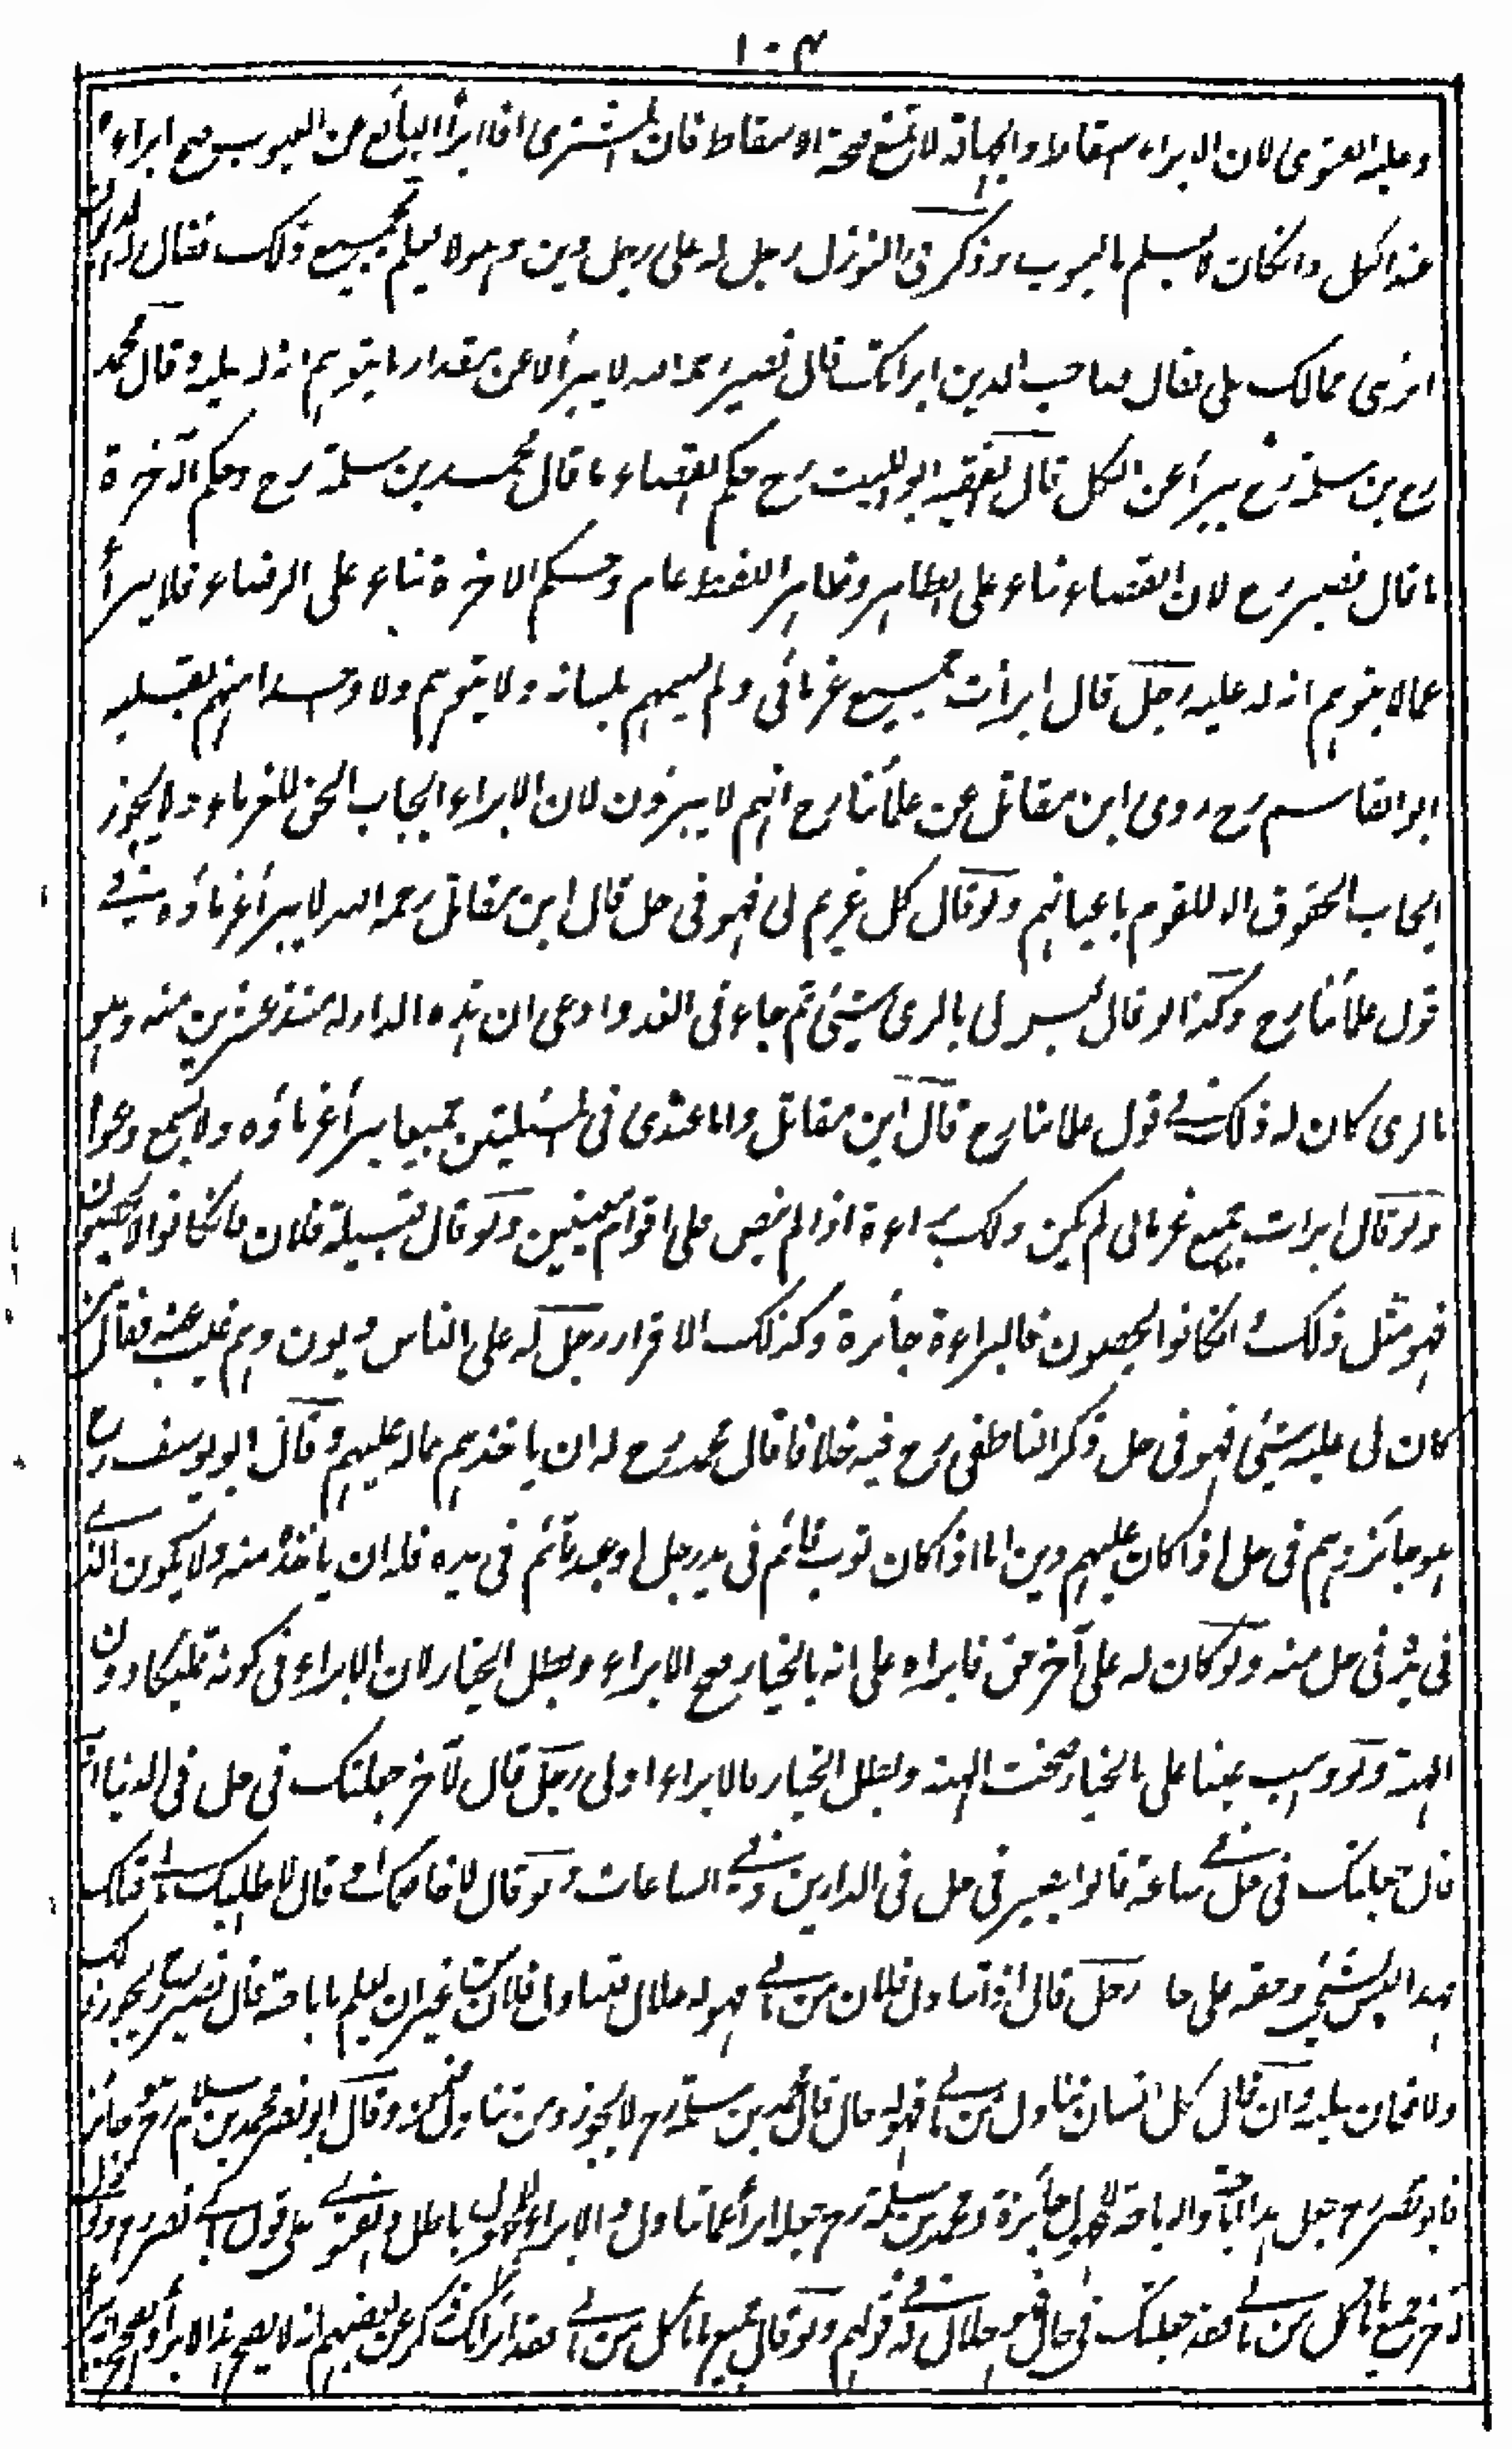 ١٠٤
وعليه الفتوى لان الابراء اسقاط والجهالة لا تمنع صحة الاسقاط فان المشترى اذا ابرأ البائع عن العيوب صح ابراءه
عند الكل وان كان لا يعلم بالعيوب وذكر فى النوازل رجل له على رجل دين وهو لا يعلم بجميع ذلك فقال له المديون
ابرئى ممالك على فقال صاحب الدين ابراتك قال نصير رحمه الله لا يبرأ الا عن مقدار ما يتوهم انه له عليه وقال محمد
رح بن سلمة رح يبرأ عن الكل قال الفقيه ابو الليث رح حكم القضاء ما قال محمد بن سلمة رح وحكم الآخرة
ما قال نصير رح لان القضاء بناء على الظاهر وظاهر اللفظ عام وحكم الاخرة بناء على الرضاء فلا يبرأ
عما لا يتوهم انه له عليه رجل قال ابرأت جميع غرمائى ولم يسمهم بلسانه ولا يتوهم ولا وحدا منهم بقلبه
ابو القاسم رح روى ابن مقاتل عن علمائنا رح انهم لا يبرؤن لان الابراء ايجاب الحق للغرماء ولا يجوز
ايجاب الحقوق الا للقوم باعيانهم ولو قال كل غريم لى فهو فى حل قال ابن مقاتل رحمه الله لا يبرأ غرماؤه فى
قول علمائنا رح وكذا لو قال ليس لى بالرى شيئ ثم جاء فى الغد وادعى ان هذه الدار له منذ عشرين سنه وهو
بالرى كان له ذلك فى قول علمائنا رح قال ابن مقاتل واما عندى فى المسئلتين جميعا يبرأ غرماؤه ولا يسمع دعوا
ولو قال ابرات جميع غرمائى لم يكن ذلك براءة اذا لم ينص على اقوام معينين ولو قال قبيلة فلان فان كانوا لا يحصون
فهو مثل ذلك وان كانوا يحصون فالبراءة جائزة وكذلك الاقرار رجل له على الناس ديون وهم غيب عنه فقال من
كان لى عليه شيئ فهو فى حل ذكر الناطفى رح فيه خلافا قال محمد رح له ان ياخذهم بماله عليهم وقال ابو يوسف رح
هو جائز وهم فى حل اذا كان عليهم دين اما اذا كان ثوب قائم فى يد رجل او عبد قائم فى يده فله ان ياخذه منه ولا يكون الذى
فى يده فى حل منه ولو كان له على آخر حق فابراه على انه بالخيار صح الابراء وبطل الخيار لان الابراء فى كونه تمليكا دون
الهبة ولو وهب عينا على بالخيار صحت الهبة وبطل الخيار بالابراء اولى رجل قال لآخر جعلتك فى حل فى الدنيا او
قال جعلتك فى حل ساعة قالوا يصير فى حل فى الدارين وفى الساعات ولو قال لا قال لا اطلبك
بهذا ليس بشيئ وحقه على حا رجل قال اذا تناول فلان من مالى فهو له حلال فتناول فلان من غير ان يعلم باباحة قال نصير رح يجوز ذلك
ولا ضمان عليه وان قال كل انسان تناول من مالى فهو له حلال قال محمد بن سلمة رح لا يجوز ومن تناول ضمن وقال ابو نصر محمد بن سلام رح هو جائز
فابو نصر رح جعل هذا اباحة والاباحة للمجهول جائزة ومحمد بن سلمة رح جعله ابراء عما تناول والابراء للمجهول باطل والفتوى على قول ابى نصر رح ولو قال
لآخر جميع ما تاكل من مالى فقد جعلتك فى حل فهو حلال له فى قولهم ولو قال جميع ما تاكل من مالى فقد ابرأتك ذكر عن بعضهم انه لا يصح هذا الابراء